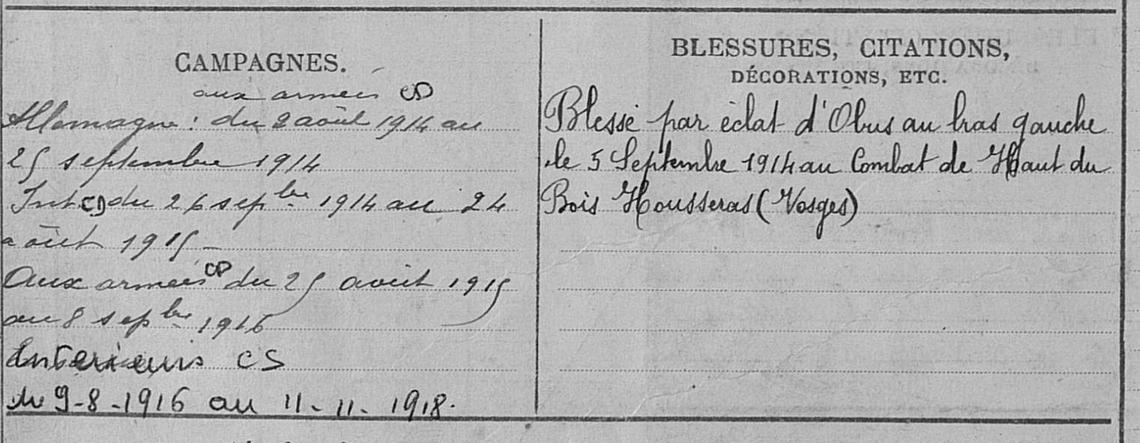 CAMPAGNES.
aux armées CD
Allemagne : du 2 août 1914 au
25 septembre 1914
Int CD du 26 sepbre 1914 au 24
août 1915 –
Aux armées CD du 25 août 1915
au 8 sepbre 1916
Interieur CS
du 9-8-1916 au 11-11-1918.
BLESSURES, CITATIONS,
DÉCORATIONS, ETC.
Blessé par éclat d'Obus au bras gauche
le 5 Septembre 1914 au Combat de Haut du
Bois Housseras (Vosges)